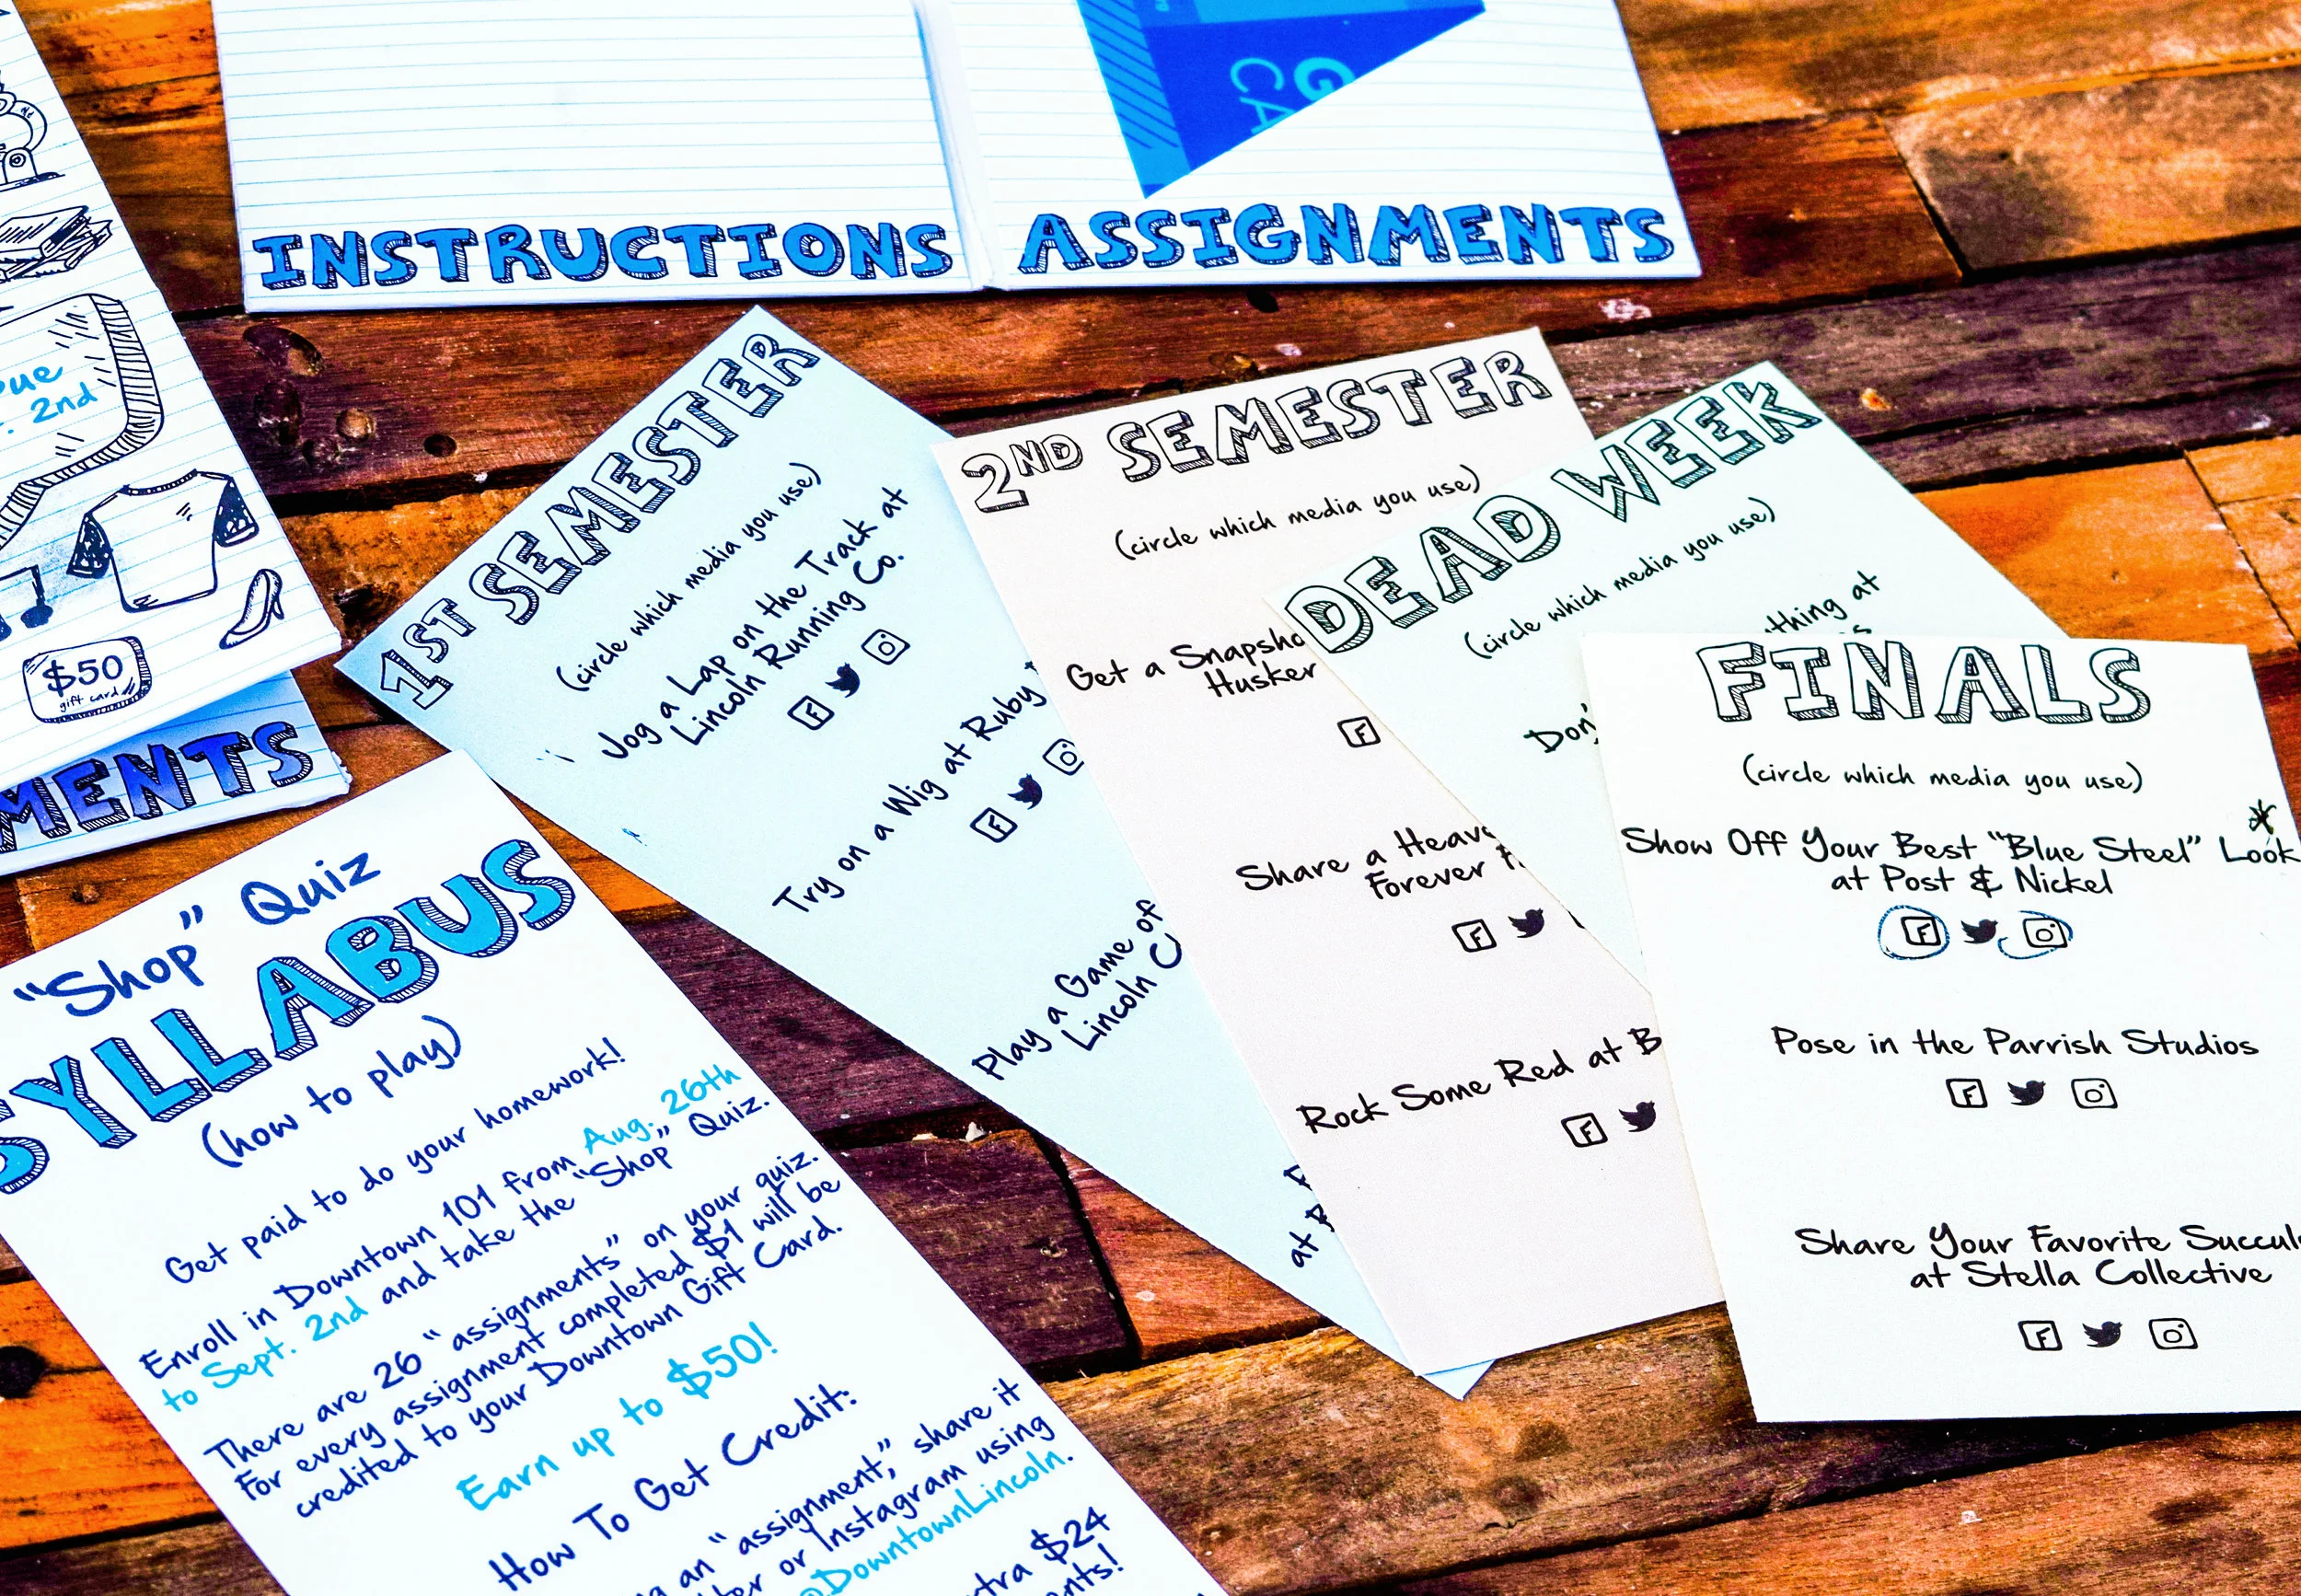 INSTRUCTIONS
ASSIGNMENTS
2nd
$50
gift card
MENTS
"Shop" Quiz
SYLLABUS
(how to play)
Get paid to do your homework!
Enroll in Downtown 101 from Aug. 26th
to Sept. 2nd and take the "Shop" Quiz.
There are 26 "assignments" on your quiz.
For every assignment completed $1 will be
credited to your Downtown Gift Card.
Earn up to $50!
How To Get Credit:
an "assignment," share it
or Instagram using
@DowntownLincoln.
$24
1ST SEMESTER
(circle which media you use)
Jog a Lap on the Track at
Lincoln Running Co.
Try on a Wig at Ruby
Play a Game of
Lincoln
at
2ND SEMESTER
(circle which media you use)
Get a Snapsho
Husker
Share a Heav
Forever
Rock Some Red at B
DEAD WEEK
(circle which media you use)
thing at
Don'
FINALS
(circle which media you use)
Show Off Your Best "Blue Steel" Look
at Post & Nickel
Pose in the Parrish Studios
Share Your Favorite Succul
at Stella Collective